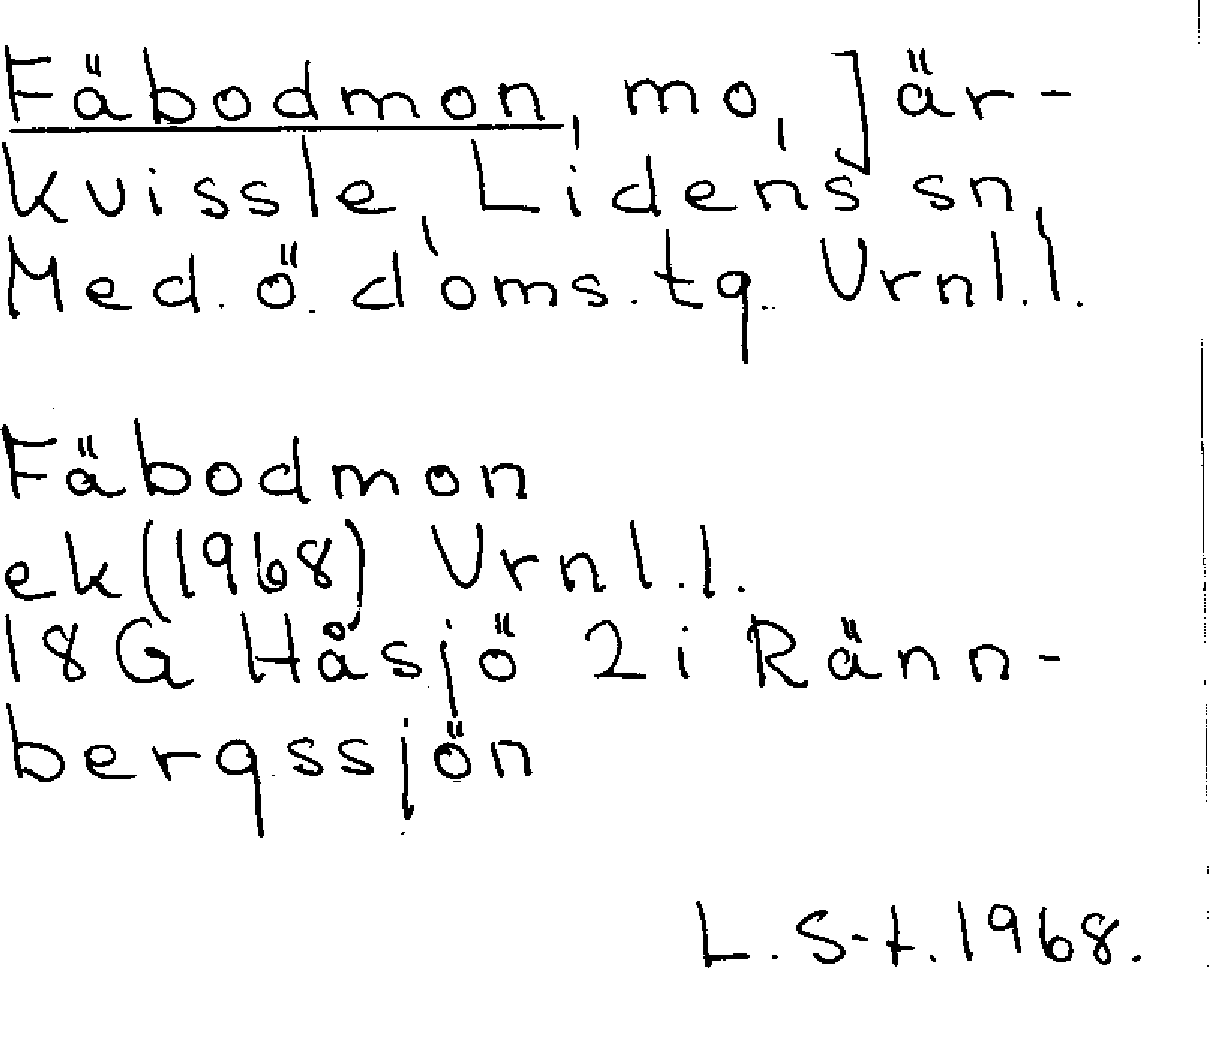 Fäbodmon, mo, Jär-
kvissle, Lidens sn,
Med. ö. doms. tg. Vrnl.l.
Fäbodmon
ek (1968) Vrnl.l.
18G Håsjö 2i Ränn-
bergssjön
L. S-t. 1968.